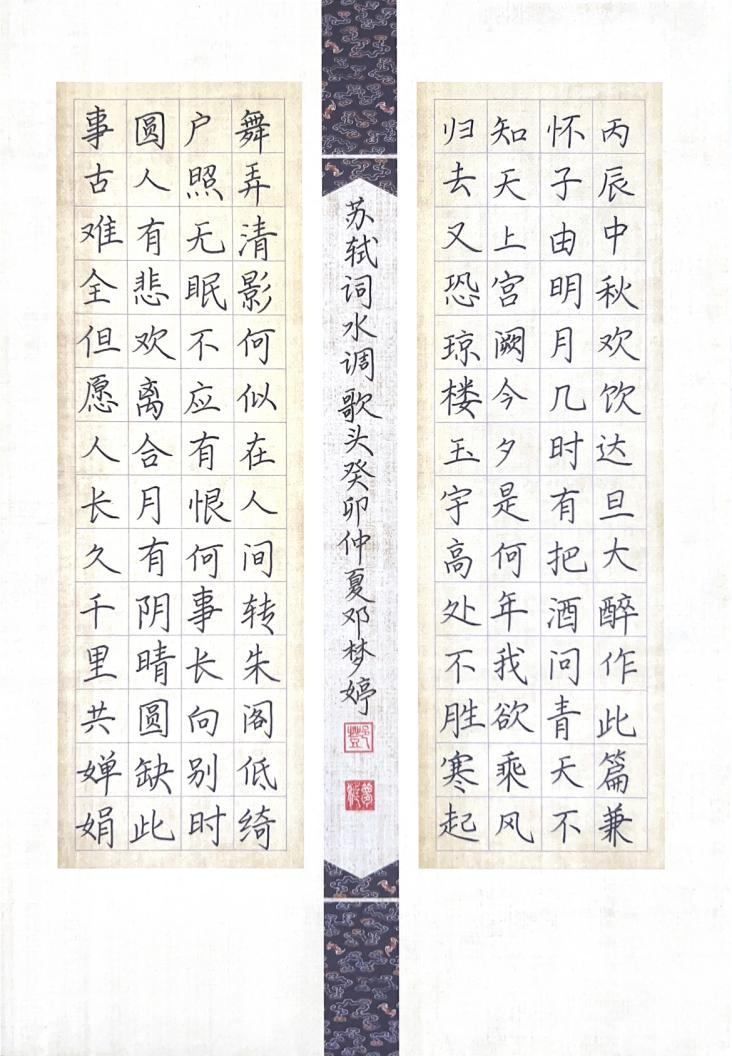 丙辰中秋欢饮达旦大醉作此篇兼
怀子由明月几时有把酒问青天不
知天上宫阙今夕是何年我欲乘风
归去又恐琼楼玉宇高处不胜寒起
舞弄清影何似在人间转朱阁低绮
户照无眠不应有恨何事长向别时
圆人有悲欢离合月有阴晴圆缺此
事古难全但愿人长久千里共婵娟
苏轼词水调歌头癸卯仲夏邓梦婷
鄧
夢婷